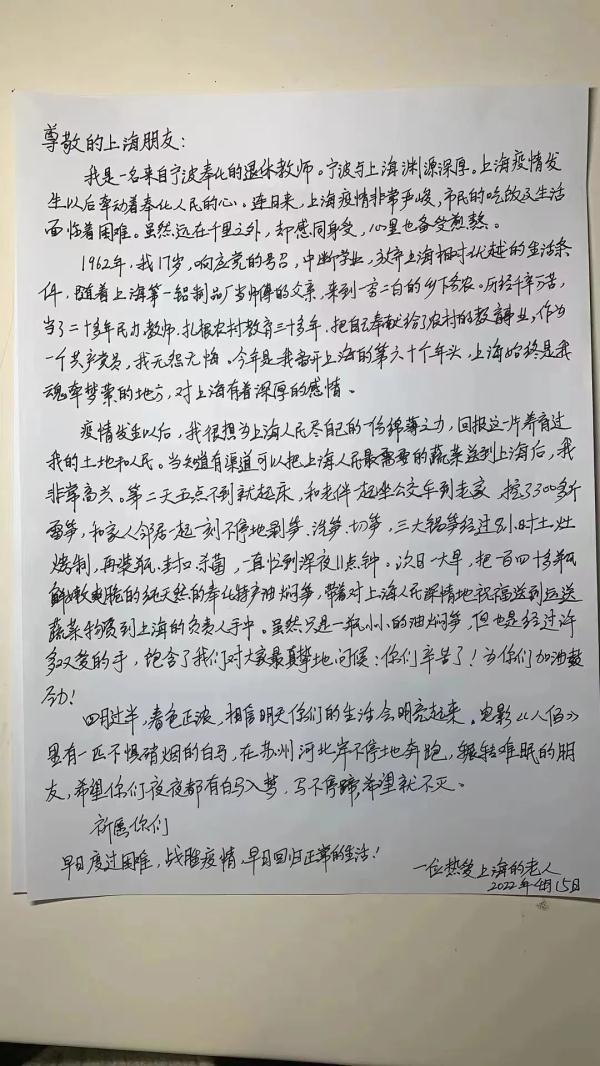 尊敬的上海朋友：
我是一名来自宁波奉化的退休教师。宁波与上海渊源深厚。上海疫情发
生以后牵动着奉化人民的心。连日来，上海疫情非常严峻，市民的吃饭及生活
面临着困难。虽然远在千里之外，却感同身受，心里也备受煎熬。
1962年，我17岁，响应党的号召，中断学业，放弃上海相对优越的生活条
件，随着上海第一铝制品厂当师傅的父亲，来到一穷二白的乡下务农。历经千辛万苦，
当了二十多年民办教师，扎根农村教育三十多年，把自己奉献给了农村的教育事业，作为
一个共产党员，我无怨无悔。今年是我离开上海的第六十个年头，上海始终是我
魂牵梦萦的地方，对上海有着深厚的感情。
疫情发生以后，我很想为上海人民尽自己的一份绵薄之力，回报这一片养育过
我的土地和人民。当知道有渠道可以把上海人民最需要的蔬菜送到上海后，我
非常高兴。第二天五点不到就起床，和老伴一起坐公交车到老家，挖了300多斤
雷笋，和家人邻居一起一刻不停地剥笋、洗笋、切笋，三大锅笋经过8小时土灶
烧制，再装瓶、封扣、杀菌，一直忙到深夜11点钟。次日一大早，把一百四十多瓶
鲜嫩爽脆的纯天然的奉化特产油焖笋，带着对上海人民深情地祝福送到运送
蔬菜物资到上海的负责人手中。虽然只是一瓶小小的油焖笋，但也是经过许
多双爱的手，饱含了我们对大家最真挚地问候：你们辛苦了！为你们加油鼓
劲！
四月过半，春色正浓，相信明天你们的生活会明亮起来。电影《八佰》
里有一匹不惧硝烟的白马，在苏州河北岸不停地奔跑，辗转难眠的朋
友，希望你们夜夜都有白马入梦，马不停蹄，希望就不灭。
祈愿你们
早日度过困难，战胜疫情，早日回归正常的生活！
一位热爱上海的老人
2022年4月15日